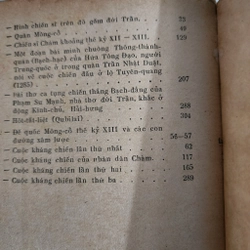 - Hình chiến sĩ trên đồ gốm đời Trần. 73
- Quân Mông-cổ 46
- Chiến sĩ Chàm khoảng thế kỷ XII — XIII. 129
- Một đoạn bài minh chuông Thông-thánh-
quán (Bạch-hạc) của Hứa Tông Đạo, người
Trung-quốc ở trong quân Trần Nhật Duật,
nói về cuộc chiến đấu ở lộ Tuyên-quang
(1285) 207
- Bài thơ ca tụng chiến thắng Bạch-đằng của
Phạm Sư Mạnh, nhà thơ đời Trần, khắc ở
động Kính-chủ, Hải-hưng 288
- Hốt-tất-liệt (Qubilai) 384
- Đế quốc Mông-cổ thế kỷ XIII và các con
đường xâm lược 56—57
- Cuộc kháng chiến lần thứ nhất 62
- Cuộc kháng chiến của nhân dân Chàm 117
- Cuộc kháng chiến lần thứ hai 165
- Cuộc kháng chiến lần thứ ba 289